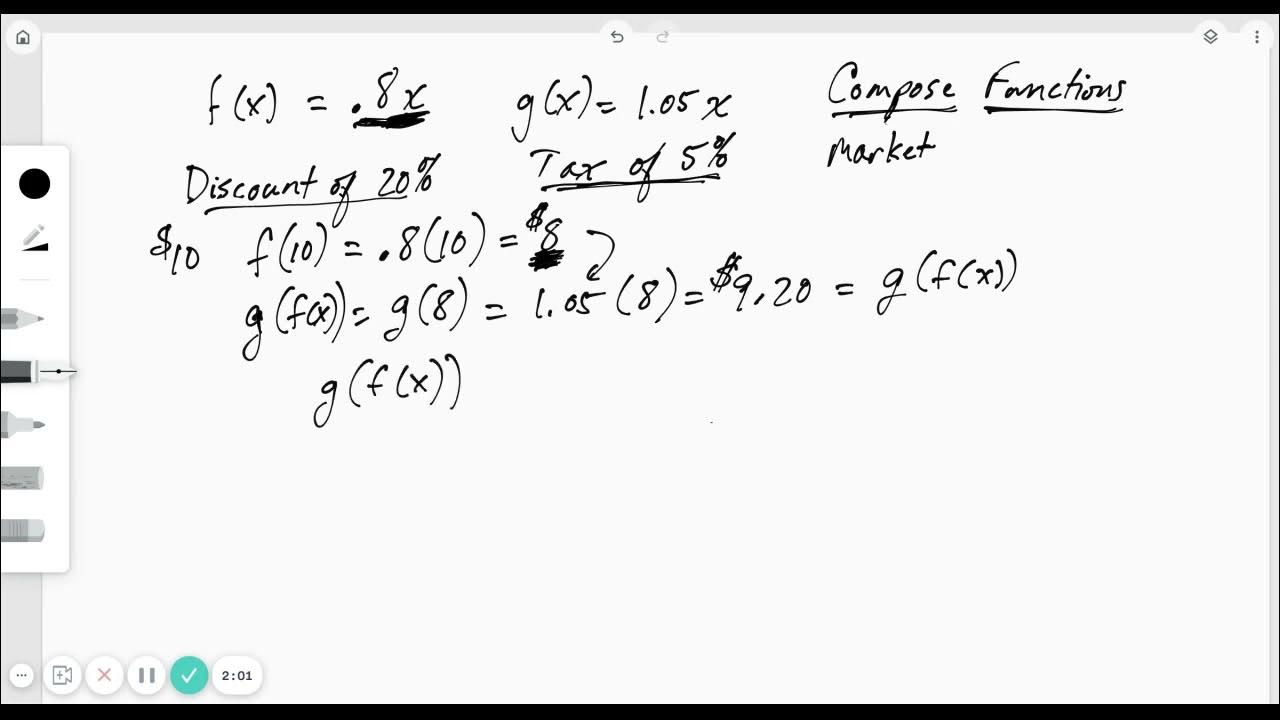 f(x) = .8x g(x) = 1.05x Compose Functions
Discount of 20% Tax of 5% market
$10 f(10) = .8(10) = $8
g(f(x)) = g(8) = 1.05(8) = $9.20 = g(f(x))
g(f(x))
2:01